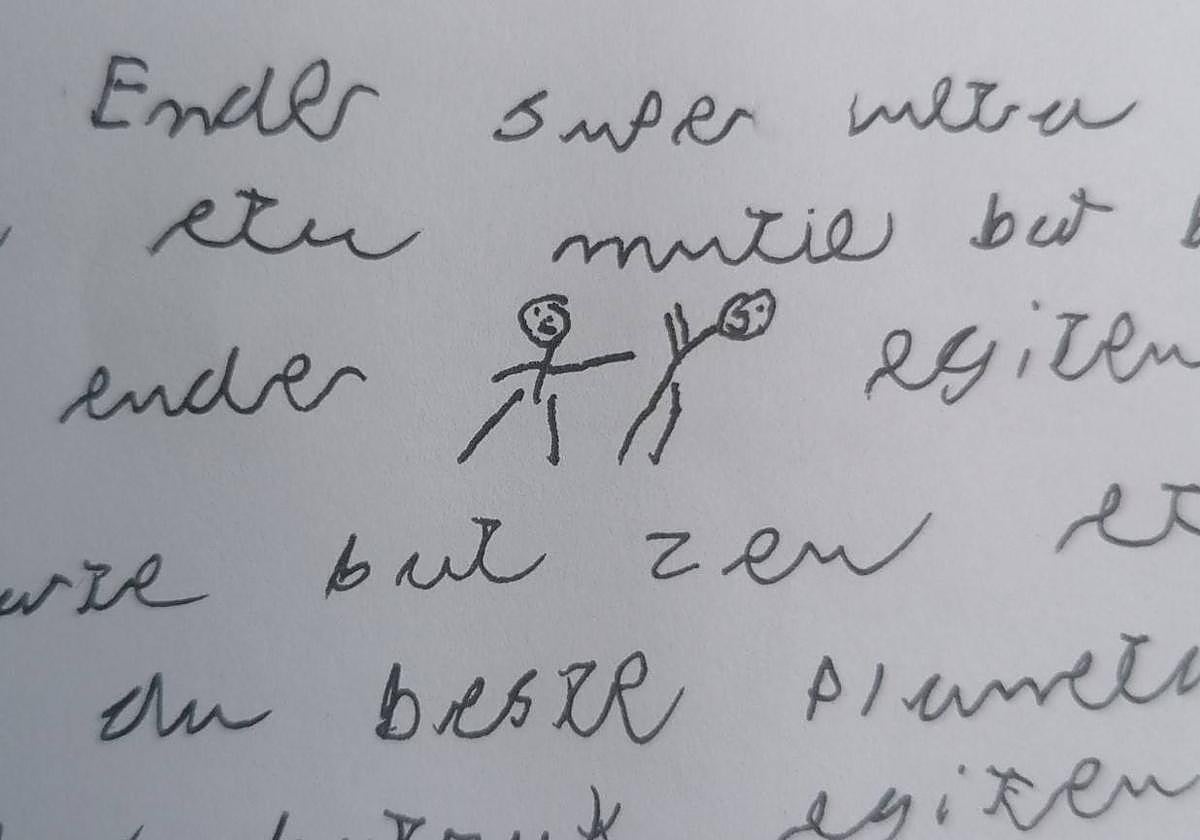 Ender super ultra
eta mutil bat
ender egiten
bat zen
du beste planeta
egiten